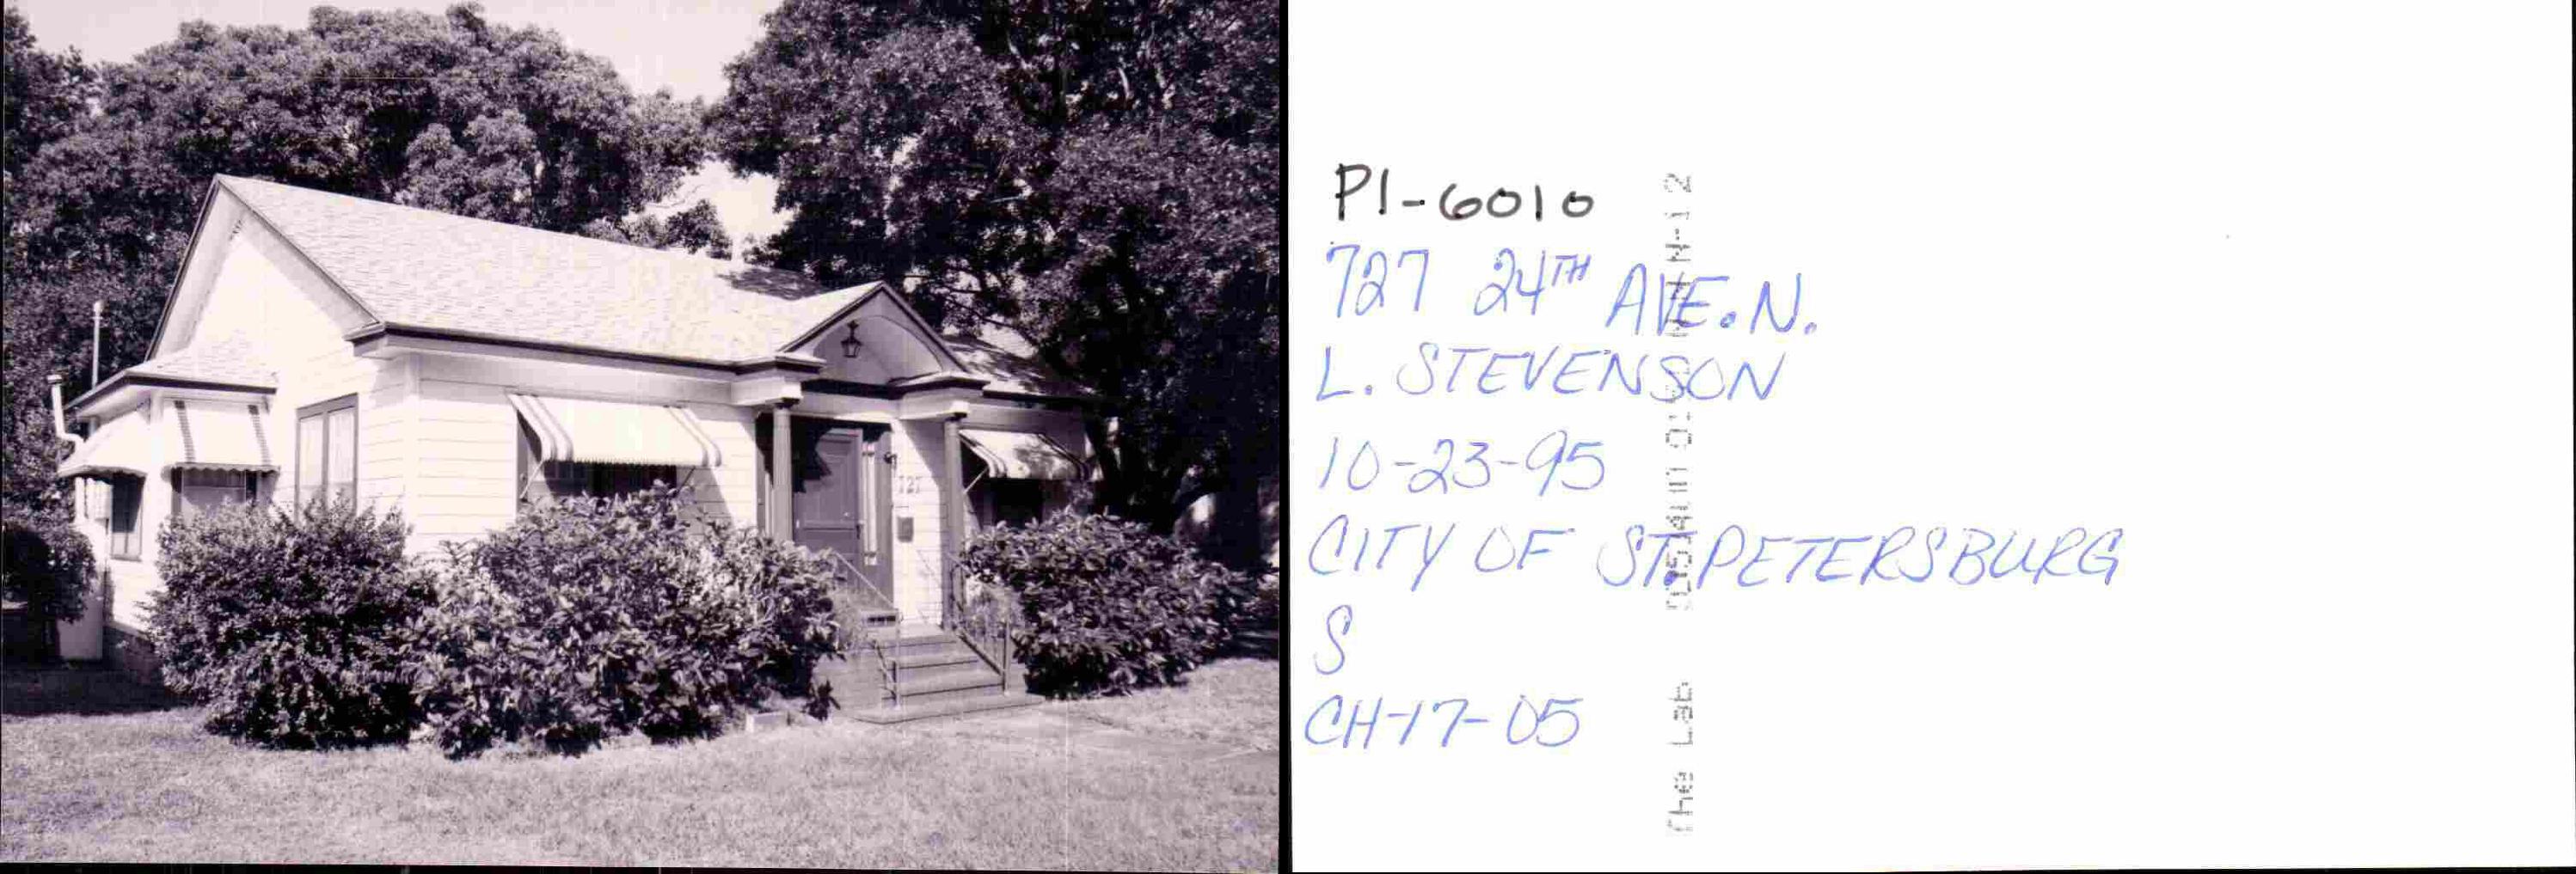 727
PI-6010
727 24TH AVE. N.
L. STEVENSON
10-23-95
CITY OF ST. PETERSBURG
S
CH-17-05
The Lab